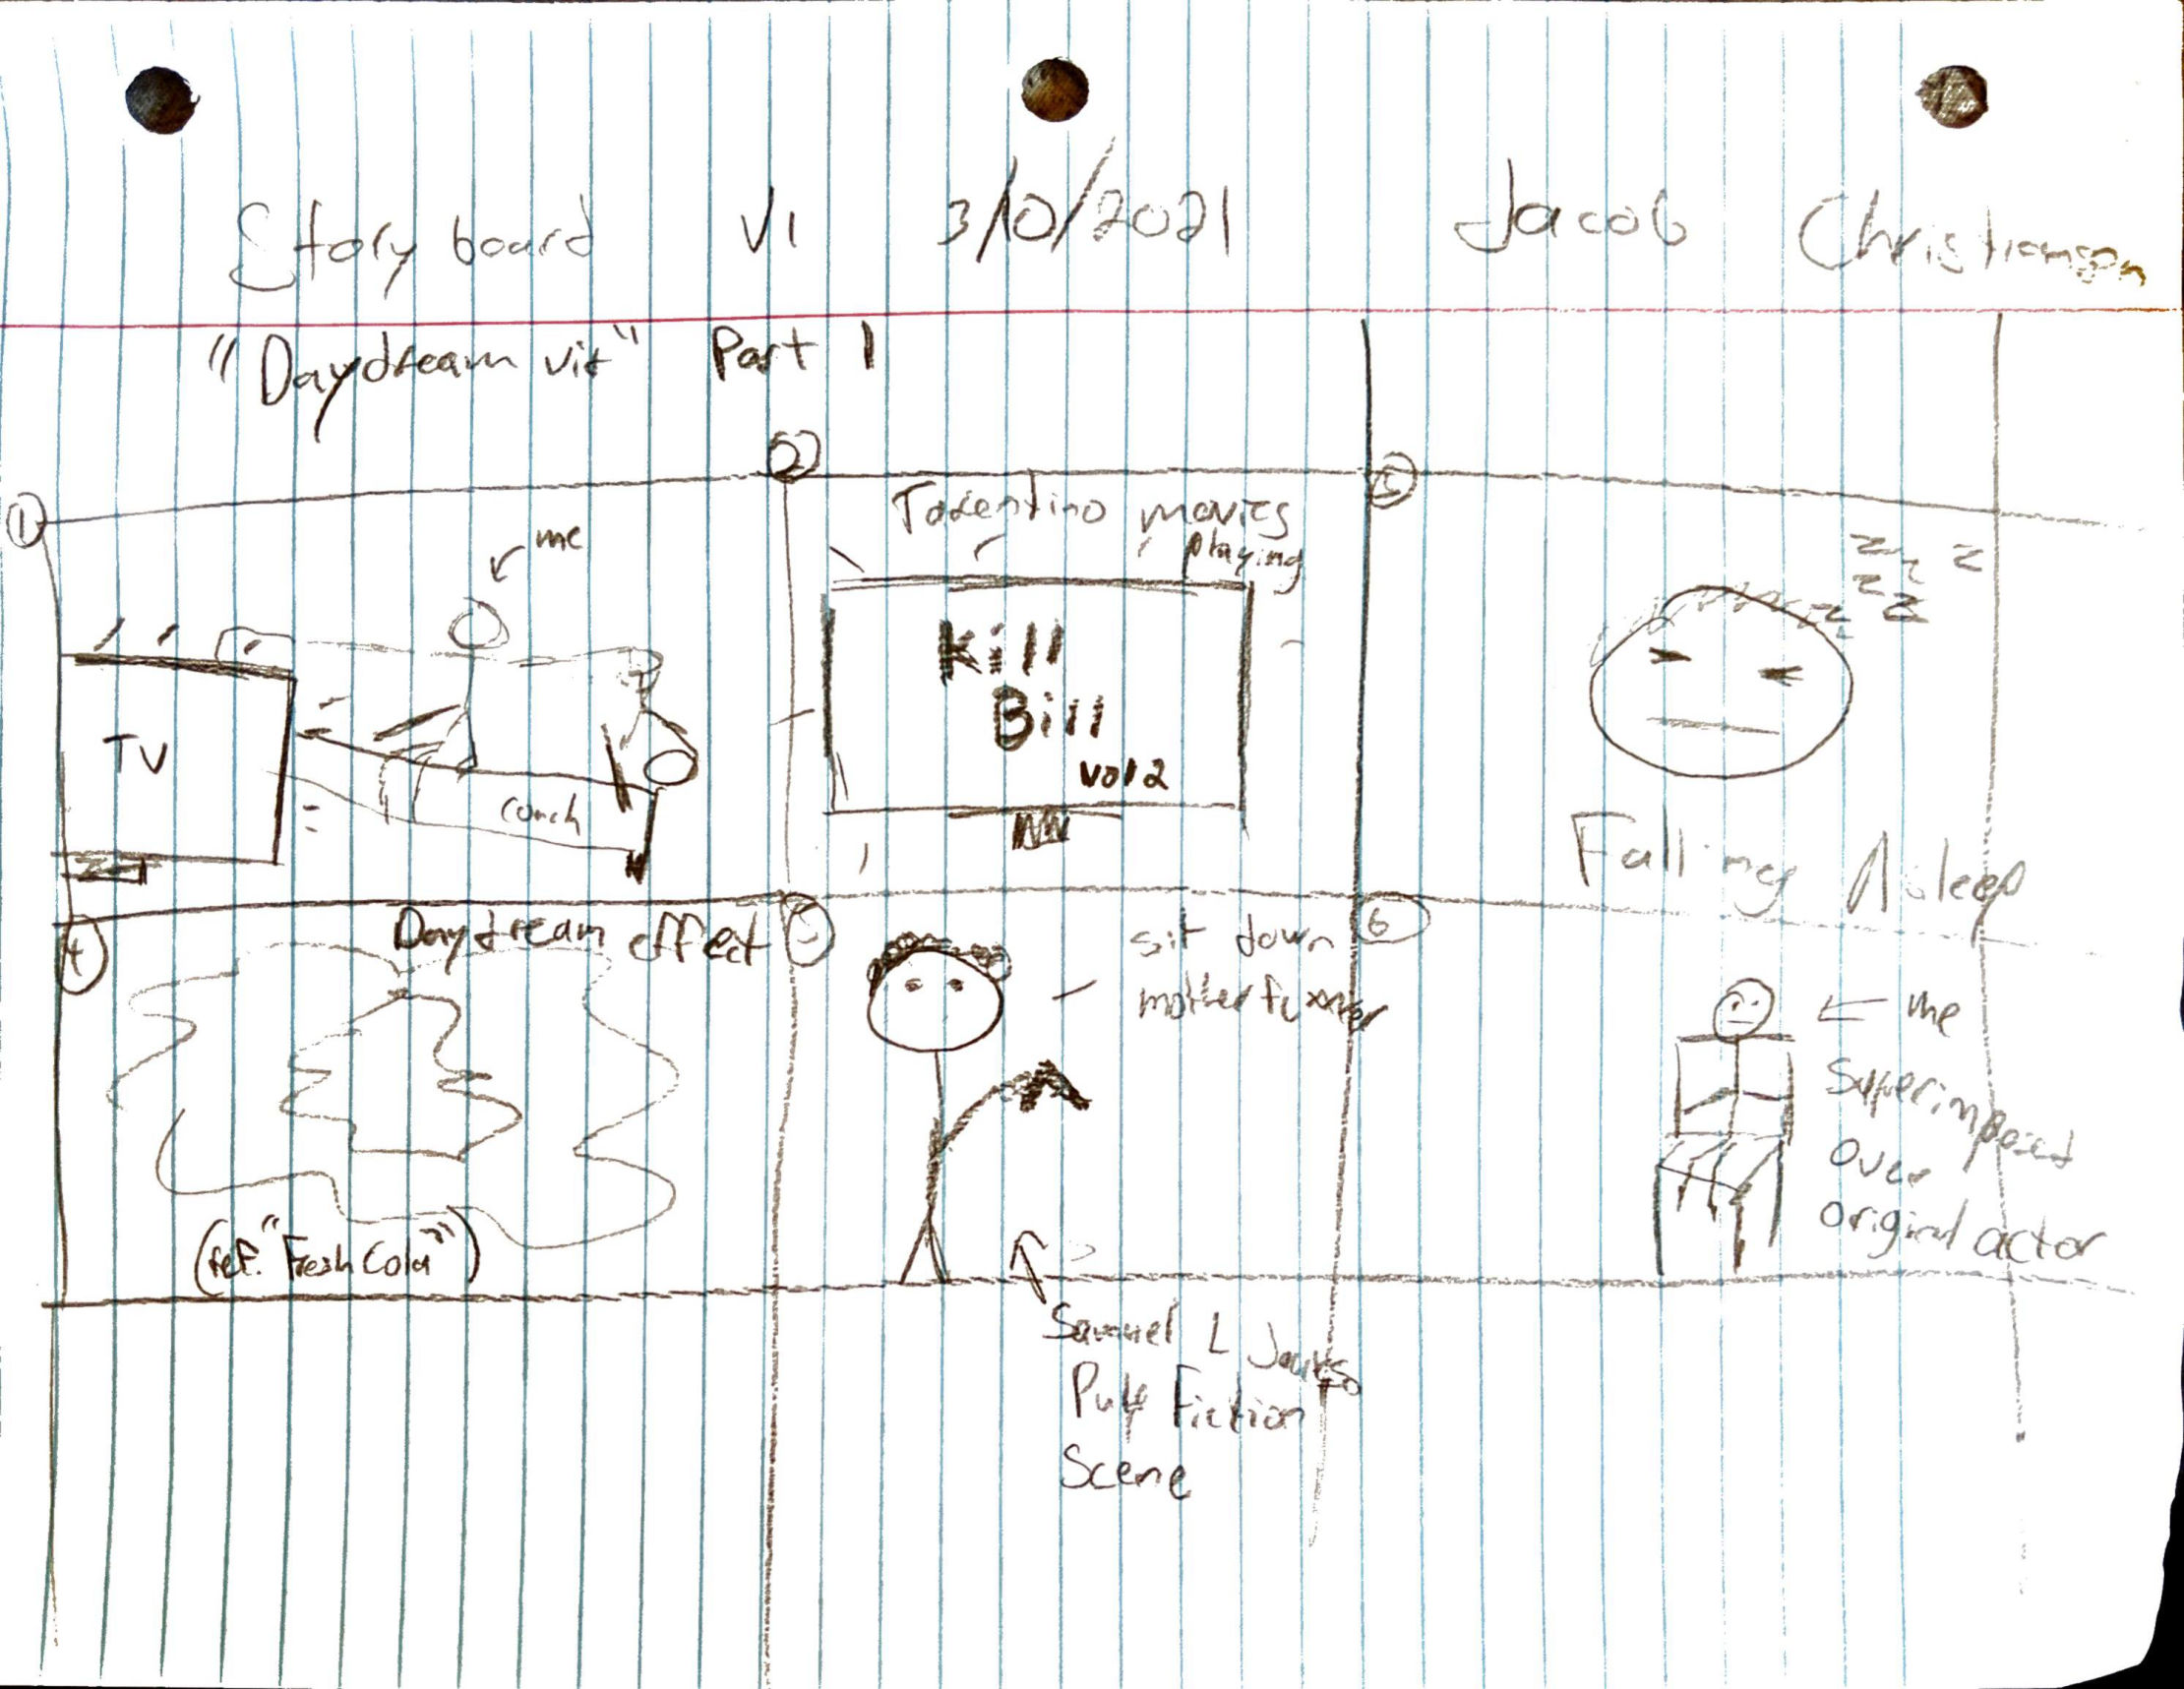 Story board V1 3/10/2021 Jacob Christianson
"Daydream vis" Part 1
1
me
TV
couch
2
Tarentino movies
playing
Kill
Bill
vol 2
z z z
z z
z
Falling Asleep
4
Daydream effect
(ref. "Fresh Cola")
5
sit down
Samuel L
Pulp Fiction
Scene
6
← me
Superimposed
Over
original actor